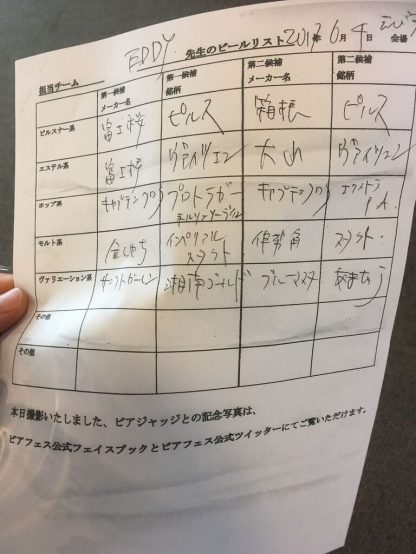 EDDY 先生のビールリスト2017年6月4日 会場
担当チーム
第一候補 メーカー名 第一候補 銘柄 第二候補 メーカー名 第二候補 銘柄
ピルスナー系 富士桜 ピルス 箱根 ピルス
エステル系 富士桜 ヴァイツェン 大山 ヴァイツェン
ホップ系 キャプテンクロウ プロトラガー キャプテンクロウ エクストラ
P.A.
モルト系 金しゃち インペリアル
スタウト 伊勢角 スタウト
ヴァリエーション系 サンクトガーレン 湘南ゴールド ブルーマスター あまおう
その他
その他
本日撮影いたしました、ビアジャッジとの記念写真は、
ビアフェス公式フェイスブックとビアフェス公式ツイッターにてご覧いただけます。